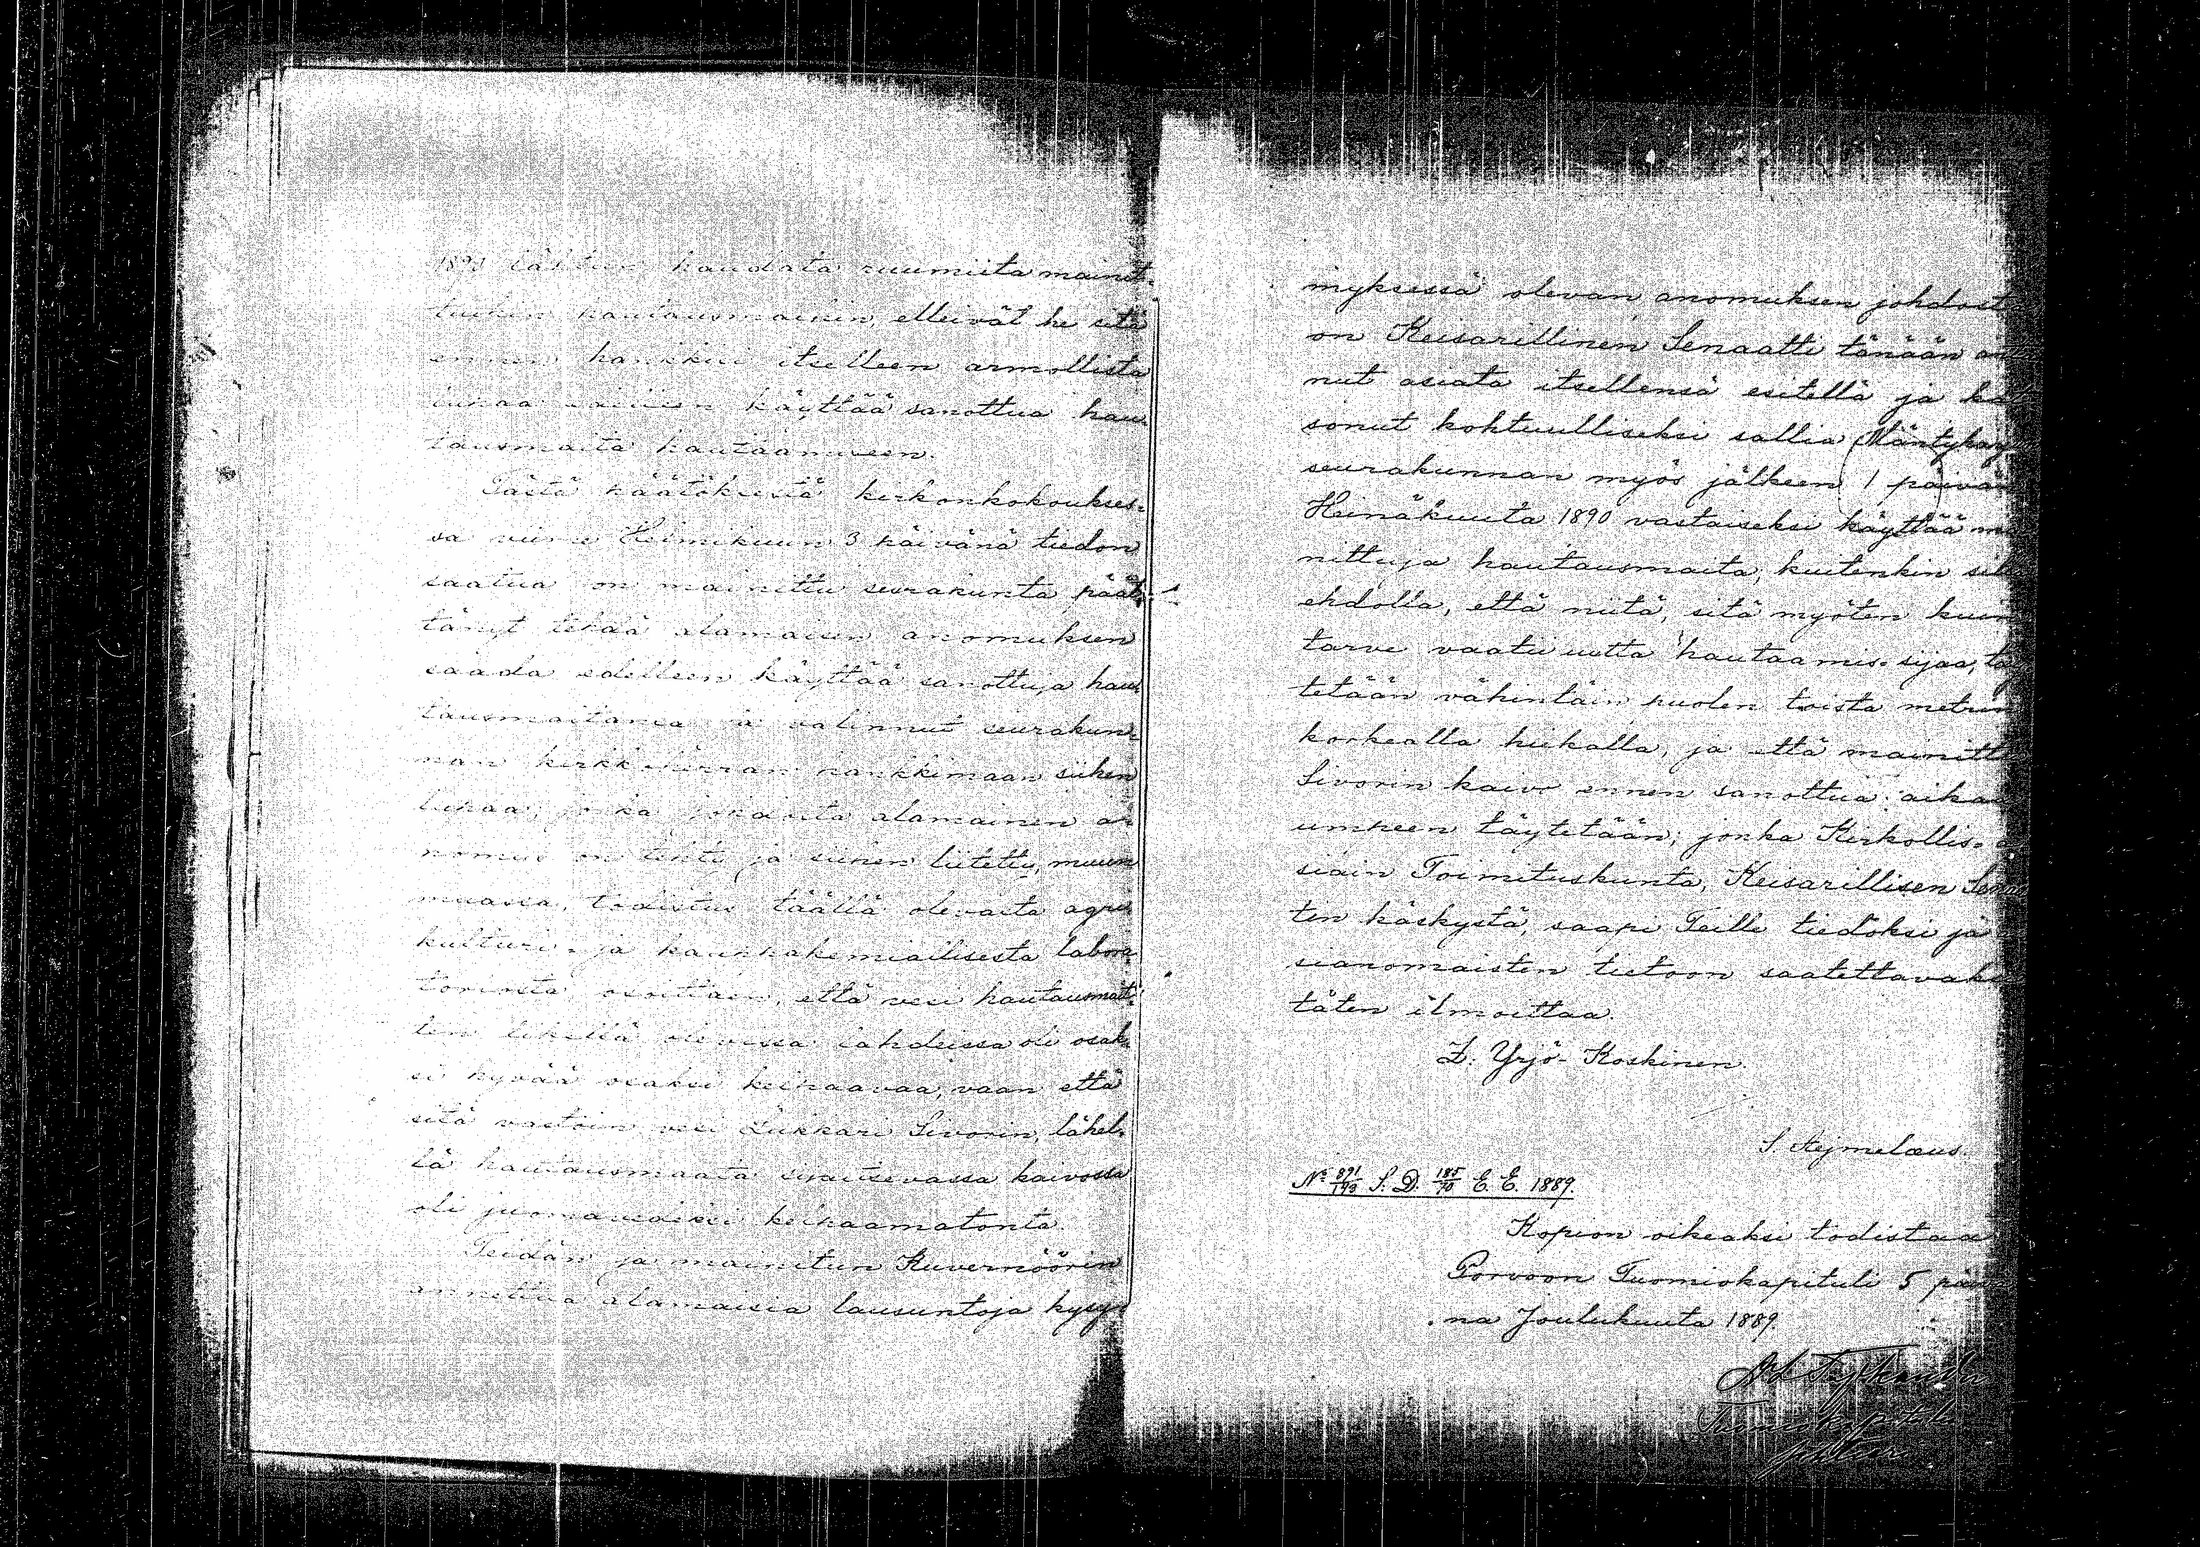 1890 lähtien haudata ruumiita mainit-
tuihin hautausmaihin, elleivät he sitä
ennen hankkisi itselleen armollista
lupaa saisien käyttää sanottua hau-
tausmaita hautaamiseen.
Tästä päätöksestä kirkonkokoukses-
sa viime Helmikuun 3 päivänä tiedon
saatua on mainittu seurakunta päät-
tänyt tehdä alamaisen anomuksen
saada edelleen käyttää sanottuja hau-
tausmaitansa ja valinnut seurakun-
nan kirkkoherran hankkimaan siihen
lupaa, jonka johdosta alamainen a-
nomus on tehty ja siihen liitetty, muun
muassa, todistus täällä olevasta agri-
kulturi- ja kauppakemiallisesta labora-
toriosta, osoittaen, että vesi hautausmait-
ten likellä olevissa lähdeissa oli osak-
si hyvää osaksi kelpaavaa, vaan että
sitä vastoin vesi Lukkari Sivorin, lähel-
lä hautausmaata sijaitsevassa kaivossa
oli juomavedeksi kelpaamatonta.
Teidän ja mainitun Kuvernöörin
annettua alamaisia lausuntoja kysy-
myksessä olevan anomuksen johdosta
on Keisarillinen Senaatti tänään anta
nut asiata itsellensä esitellä ja kat
sonut kohtuulliseksi sallia Mäntyharjun
seurakunnan myös jälkeen 1 päivän
Heinäkuuta 1890 vastaiseksi käyttää mai
nittuja hautausmaita, kuitenkin sillä
ehdolla, että niitä, sitä myöten kuin
tarve vaatii uutta hautaamis-sijaa, täy
tetään vähintäin puolen toista metrin
korkealla hiekalla, ja että mainittu
Sivorin kaivo ennen sanottua aikaa
umpeen täytetään; jonka Kirkollis- a
siain Toimituskunta, Keisarillisen Senaa
tin käskystä, saapi Teille tiedoksi ja a
sianomaisten tietoon saatettavaksi
täten ilmoittaa.
Z. Yrjö-Koskinen.
S. Nejmelæus.
No 891/193 S. D. 185/70 E. E. 1889.
Kopion oikeaksi todistaa
Porvoon Tuomiokapituli 5 päivä
na Joulukuuta 1889.